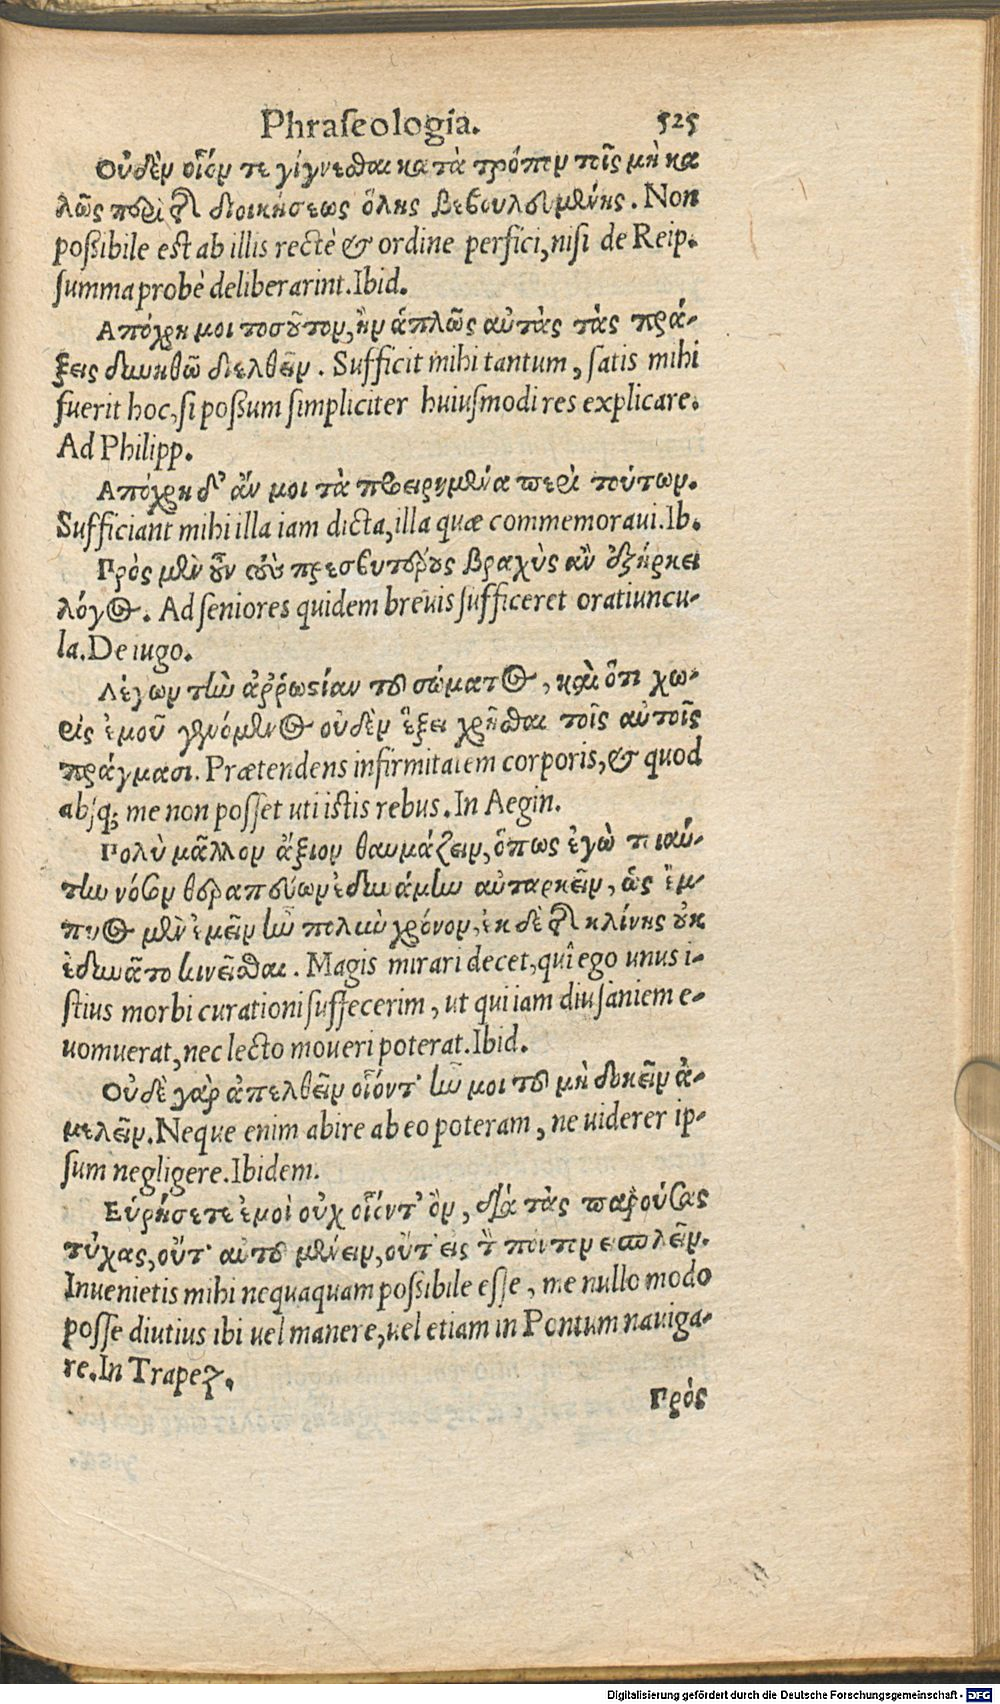 Phraſeologia. 525
Οὐδὲν οἷόν τε γίγνεσθαι κατὰ τρόπον τοῖς μὴ κα
λῶς περὶ τῆς διοικήσεως ὅλης βεβουλευμένης. Non
poßibile est ab illis rectè & ordine perfici, niſi de Reip.
ſumma probè deliberarint. Ibid.
Απόχρη μοι τοσοῦτον, ἢν ἁπλῶς αὐτὰς τὰς πρά-
ξεις δυνηθῶ διελθεῖν. Sufficit mihi tantum, ſatis mihi
fuerit hoc, ſi poßum ſimpliciter huiuſmodi res explicare.
Ad Philipp.
Απόχρη δ' ἄν μοι τὰ προειρημένα περὶ τούτων.
Sufficiant mihi illa iam dicta, illa quæ commemoraui. Ib.
Πρὸς μὲν οὖν τοὺς πρεσβυτέρους βραχὺς ἂν ἐξήρκει
λόγος. Ad ſeniores quidem breuis ſufficeret oratiuncu-
la. De iugo.
Λέγων τὴν ἀῤῥωστίαν τοῦ σώματος, καὶ ὅτι χω-
ρὶς ἐμοῦ γενόμενος οὐδὲν ἕξει χρῆσθαι τοῖς αὐτοῖς
πράγμασι. Prætendens infirmitatem corporis, & quod
abſq; me non poſſet uti istis rebus. In Aegin.
Πολὺ μᾶλλον ἄξιον θαυμάζειν, ὅπως ἐγὼ τοιαύ-
την νόσον θεραπεύων ἐδυνάμην αὐταρκεῖν, ὃς ἔμ-
πυος μὲν ἐμεῖν ἦν πολὺν χρόνον, ἐκ δὲ τῆς κλίνης οὐκ
ἐδυνᾶτο κινεῖσθαι. Magis mirari decet, quî ego unus i-
stius morbi curationi ſuffecerim, ut qui iam diu ſaniem e-
uomuerat, nec lecto moueri poterat. Ibid.
Οὐδὲ γὰρ ἀπελθεῖν οἷόντ' ἦν μοι τοῦ μὴ δοκεῖν ἀ-
μελεῖν. Neque enim abire ab eo poteram, ne uiderer ip-
ſum negligere. Ibidem.
Εὑρήσετε ἐμοὶ οὐχ οἷόντ' ὂν, διὰ τὰς παρούσας
τύχας, οὔτ' αὐτοῦ μένειν, οὔτ' εἰς τὸν πόντον ἐσπλεῖν.
Inuenietis mihi nequaquam poſsibile eſſe, me nullo modo
poſſe diutius ibi uel manere, uel etiam in Pontum nauiga-
re. In Trapez.
Πρὸς
Digitalisierung gefördert durch die Deutsche Forschungsgemeinschaft - DFG